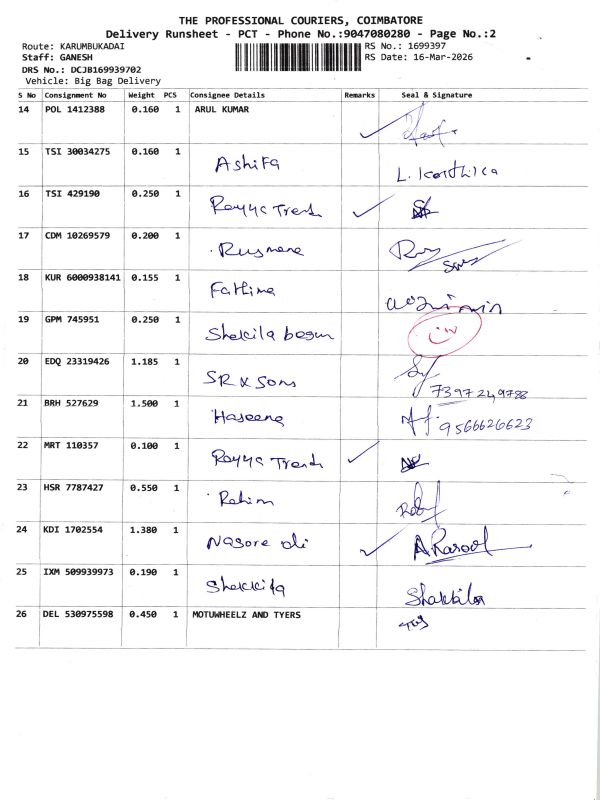 THE PROFESSIONAL COURIERS, COIMBATORE
Delivery Runsheet - PCT - Phone No.:9047080280 - Page No.:2
Route: KARUMBUKADAI
RS No.: 1699397
Staff: GANESH
RS Date: 16-Mar-2026
DRS No.: DCJB169939702
Vehicle: Big Bag Delivery
S No Consignment No Weight PCS Consignee Details Remarks Seal & Signature
14 POL 1412388 0.160 1 ARUL KUMAR
15 TSI 30034275 0.160 1 Ashifa L. Karthica
16 TSI 429190 0.250 1
17 CDM 10269579 0.200 1
18 KUR 6000938141 0.155 1 Fathima
19 GPM 745951 0.250 1 Shakila
20 EDQ 23319426 1.185 1 SR X Sons 7397249788
21 BRH 527629 1.500 1 Haseena 9566626623
22 MRT 110357 0.100 1
23 HSR 7787427 0.550 1 Rahim
24 KDI 1702554 1.380 1 Nasore ali A.Rasool
25 IXM 509939973 0.190 1 Shakkila Shakkila
26 DEL 530975598 0.450 1 MOTUWHEELZ AND TYERS